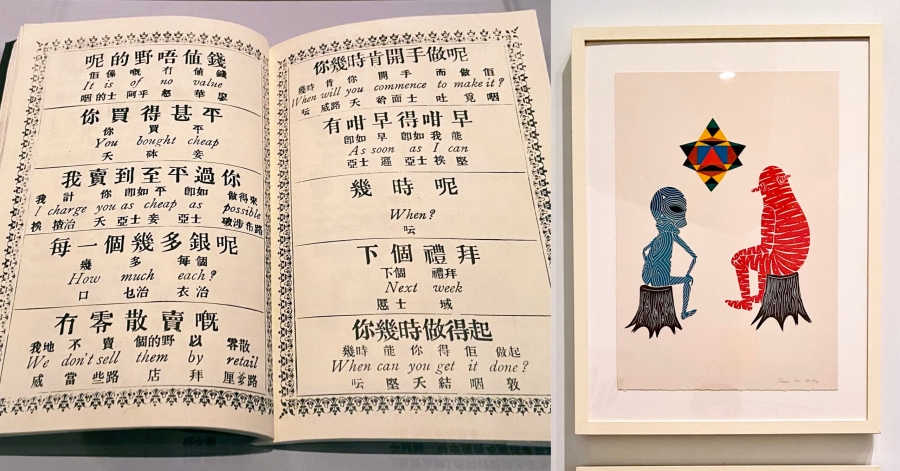 呢的野唔值錢
佢係嘅冇值錢
It is of no value
咽的士阿乎怒華廖
你買得甚平
你買平
You bought cheap
夭砵妾
我賣到至平過你
我計你卽如平卽如做得來
I charge you as cheap as possible
挨揸治夭亞士妾亞士破涉布路
每一個幾多銀呢
幾多每個
How much each?
口乜治衣治
冇零散賣嘅
我地不賣個的野以零散
We don't sell them by retail
威當些路店拜厘爹路
你幾時肯開手做呢
幾時肯你開手而做佢
When will you commence to make it?
坛威路夭給面士吐覓咽
有咁早得咁早
卽如早卽如我能
As soon as I can
亞士遜亞士挨堅
幾時呢
When?
坛
下個禮拜
下個禮拜
Next week
慝士域
你幾時做得起
幾時能你得佢做起
When can you get it done?
坛堅夭結咽敦